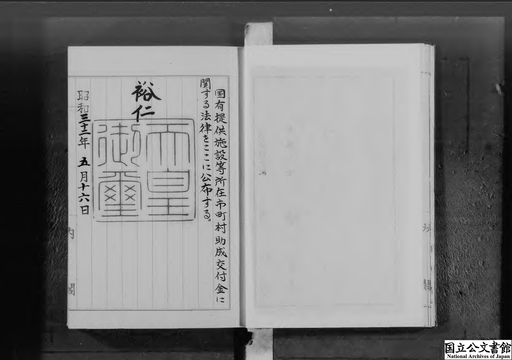 国有提供施設等所在市町村助成交付金に
関する法律をここに公布する。
裕仁
天皇
御璽
昭和三十二年五月十六日
内閣
内閣
国立公文書館
National Archives of Japan